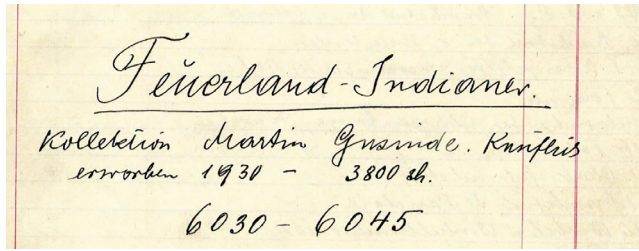 Feuerland-Indianer.
Kollektion Martin Gusinde. Käuflich
erworben 1930 - 3800 sh.
6030 - 6045